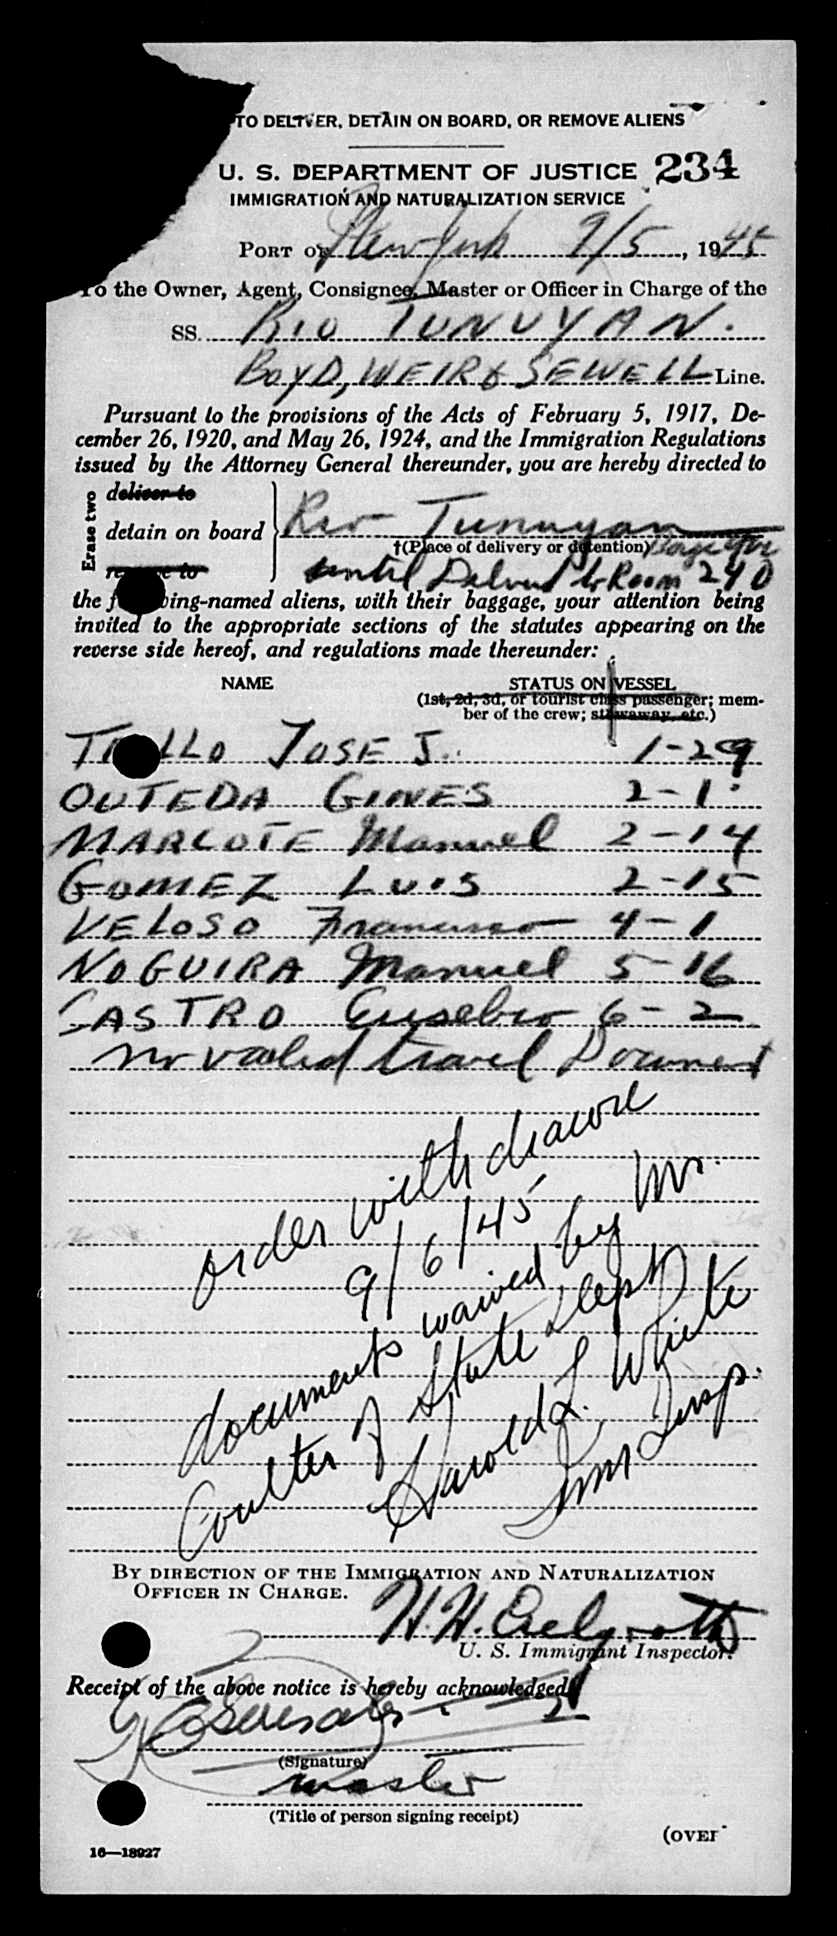 TO DELIVER, DETAIN ON BOARD, OR REMOVE ALIENS
U. S. DEPARTMENT OF JUSTICE 234
IMMIGRATION AND NATURALIZATION SERVICE
PORT OF New York 9/5, 1945
To the Owner, Agent, Consignee, Master or Officer in Charge of the
SS. RIO TUNUYAN.
BOYD, WEIR & SEWELL Line.
Pursuant to the provisions of the Acts of February 5, 1917, De-
cember 26, 1920, and May 26, 1924, and the Immigration Regulations
issued by the Attorney General thereunder, you are hereby directed to
Erase two
deliver to
detain on board
Rio Tunuyan
†(Place of delivery or detention)
until to Room 240
the following-named aliens, with their baggage, your attention being
invited to the appropriate sections of the statutes appearing on the
reverse side hereof, and regulations made thereunder:
NAME STATUS ON VESSEL
(1st, 2d, 3d, or tourist class passenger; mem-
ber of the crew; stowaway, etc.)
JOSE J. 1-29
OUTEDA GINES 2-1
MARCOTE Manuel 2-14
GOMEZ LUIS 2-15
VELOSO Francisco 4-1
NOGUIRA Manuel 5-16
CASTRO Eusebio 6-2
no valid travel Document
order withdrawn
9/6/45
documents waived by Mr.
Coulter of State Dept
Harold L. White
Imm Insp.
BY DIRECTION OF THE IMMIGRATION AND NATURALIZATION
OFFICER IN CHARGE.
H. H.
U. S. Immigrant Inspector.
Receipt of the above notice is hereby acknowledged
(Signature)
master
(Title of person signing receipt)
(OVER
16—18927